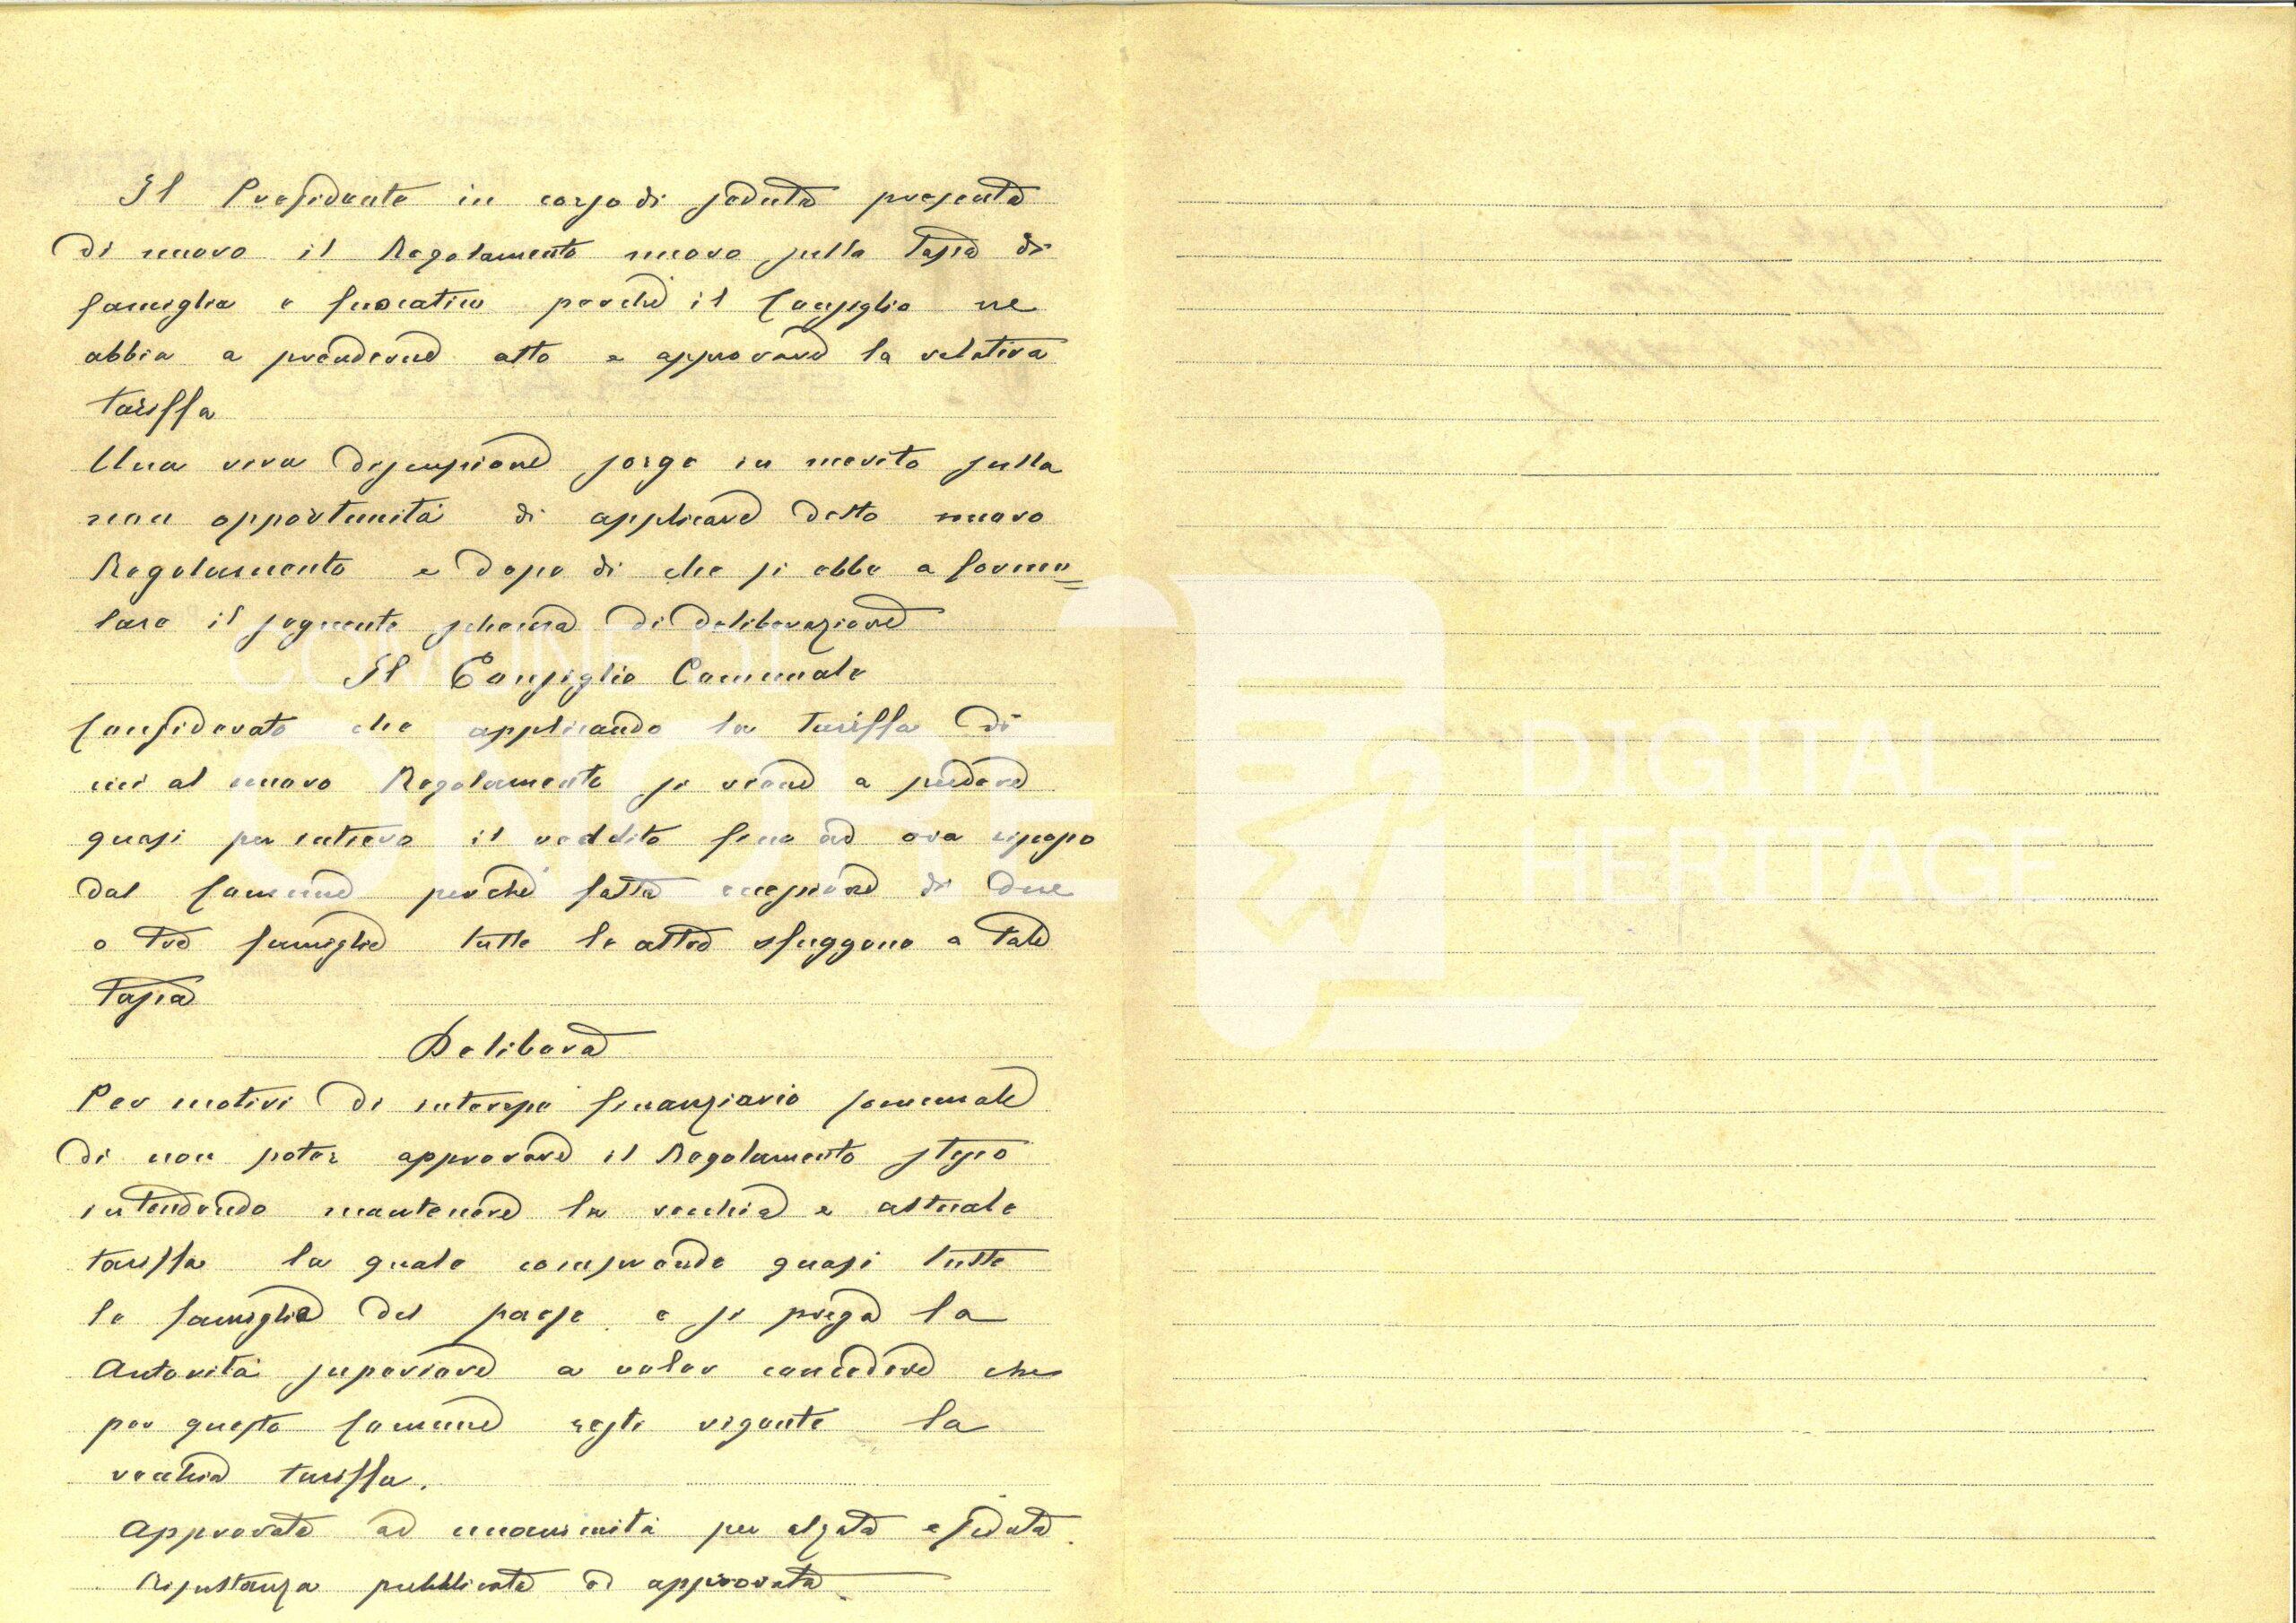 Il Presidente in corso di seduta presenta
di nuovo il Regolamento nuovo sulla Tassa di
famiglia o fuocatico perchè il Consiglio ne
abbia a prenderne atto e approvare la relativa
tariffa
Una viva discussione sorge in merito sulla
non opportunità di applicare detto nuovo
Regolamento e dopo di che si ebbe a formu=
lare il seguente schema di deliberazione
Il Consiglio Comunale
Considerato che applicando la tariffa di
cui al nuovo Regolamento si viene a perdere
quasi per intiero il reddito fino ad ora riscosso
dal Comune perchè fatta eccezione di due
o tre famiglie tutte le altre sfuggono a tale
Tassa
Delibera
Per motivi di interesse finanziario comunale
di non poter approvare il Regolamento stesso
intendendo mantenere la vecchia e attuale
tariffa la quale comprende quasi tutte
le famiglie del paese e si prega la
Autorità superiore a voler concedere che
per questo Comune resti vigente la
vecchia tariffa.
Approvata ad unanimità per alzata e seduta.
Risultanza pubblicata ed approvata.
COMUNE DI
ONORE
DIGITAL
HERITAGE